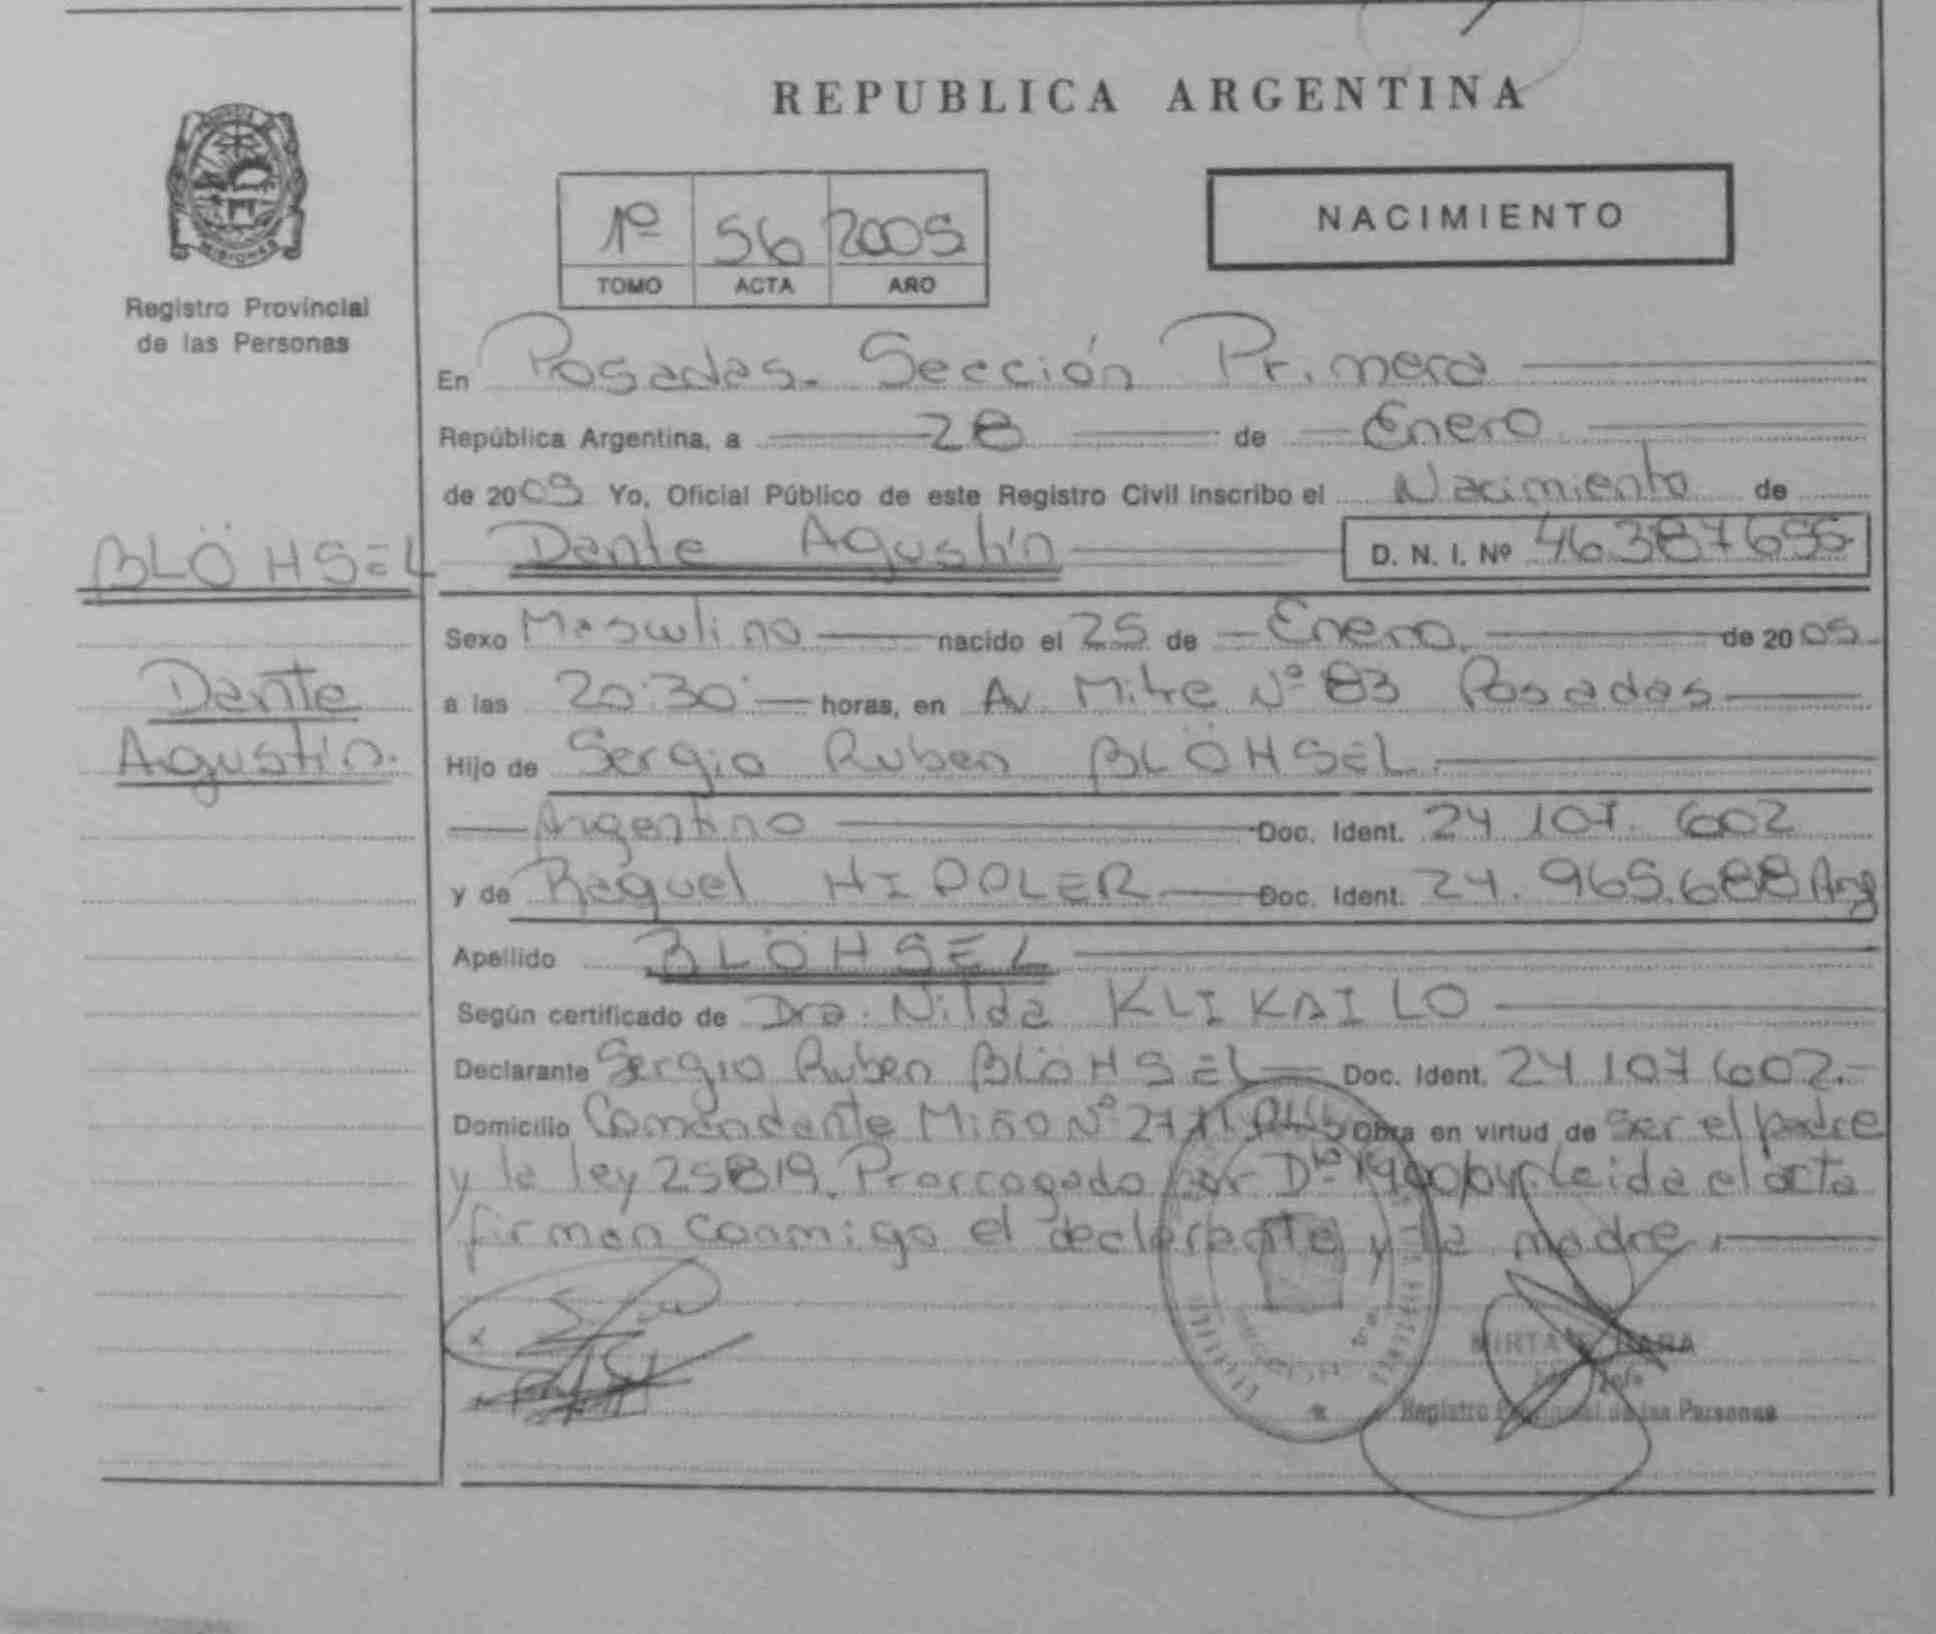 REPUBLICA ARGENTINA
MISIONES
Registro Provincial
de las Personas
1º 56 2005
TOMO ACTA AÑO
NACIMIENTO
En Posadas. Sección Primera
República Argentina, a 28 de Enero
de 2005 Yo, Oficial Público de este Registro Civil inscribo el Nacimiento de
BLÖHSEL
Dante Agustín D. N. I. Nº 46387655
Dante
Agustín.
Sexo Masculino nacido el 25 de Enero de 2005
a las 20:30 horas, en Av. Mitre Nº 83 Posadas
Hijo de Sergio Ruben BLÖHSEL
Argentino Doc. Ident. 24 107. 602
y de Raquel HIPPLER Doc. Ident. 24.965.688 Arg
Apellido BLÖHSEL
Según certificado de Dra. Nilda KLIKAILO
Declarante Sergio Ruben BLÖHSEL Doc. Ident. 24 107 602.-
Domicilio Comandante Miño Nº Obra en virtud de ser el padre
y la ley 25819. Prorrogado por leida el acta
firman conmigo el declarante y la madre.
MIRTA
Registro Provincial de las Personas